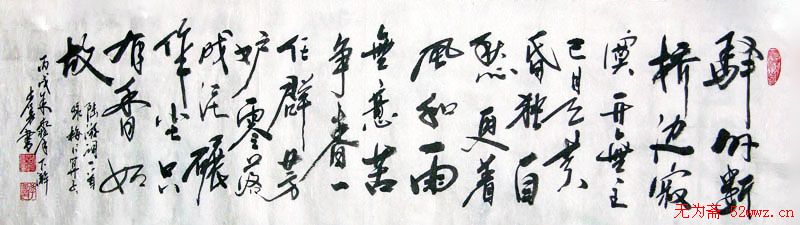 驿外断
桥边寂
寞开無主
已是黄
昏独自
愁更着
风和雨
無意苦
争春一
任群芳
妒零落
成泥碾
作尘只
有香如
故
陆游词一首
咏梅卜算子
丙戌年 月下
书
无为斋 52wwz.cn